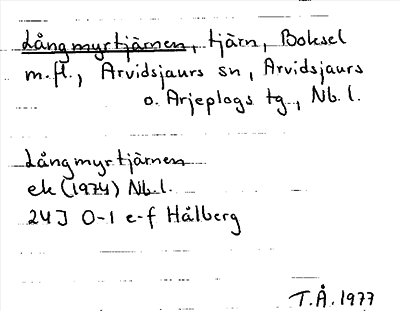 Långmyrtjärnen, tjärn, Boksel
m.fl., Arvidsjaurs sn, Arvidsjaurs
o. Arjeplogs tg., Nb. l.
Långmyrtjärnen
ek (1974) Nb. l.
24J 0-1 e-f Hålberg
T.Å. 1977